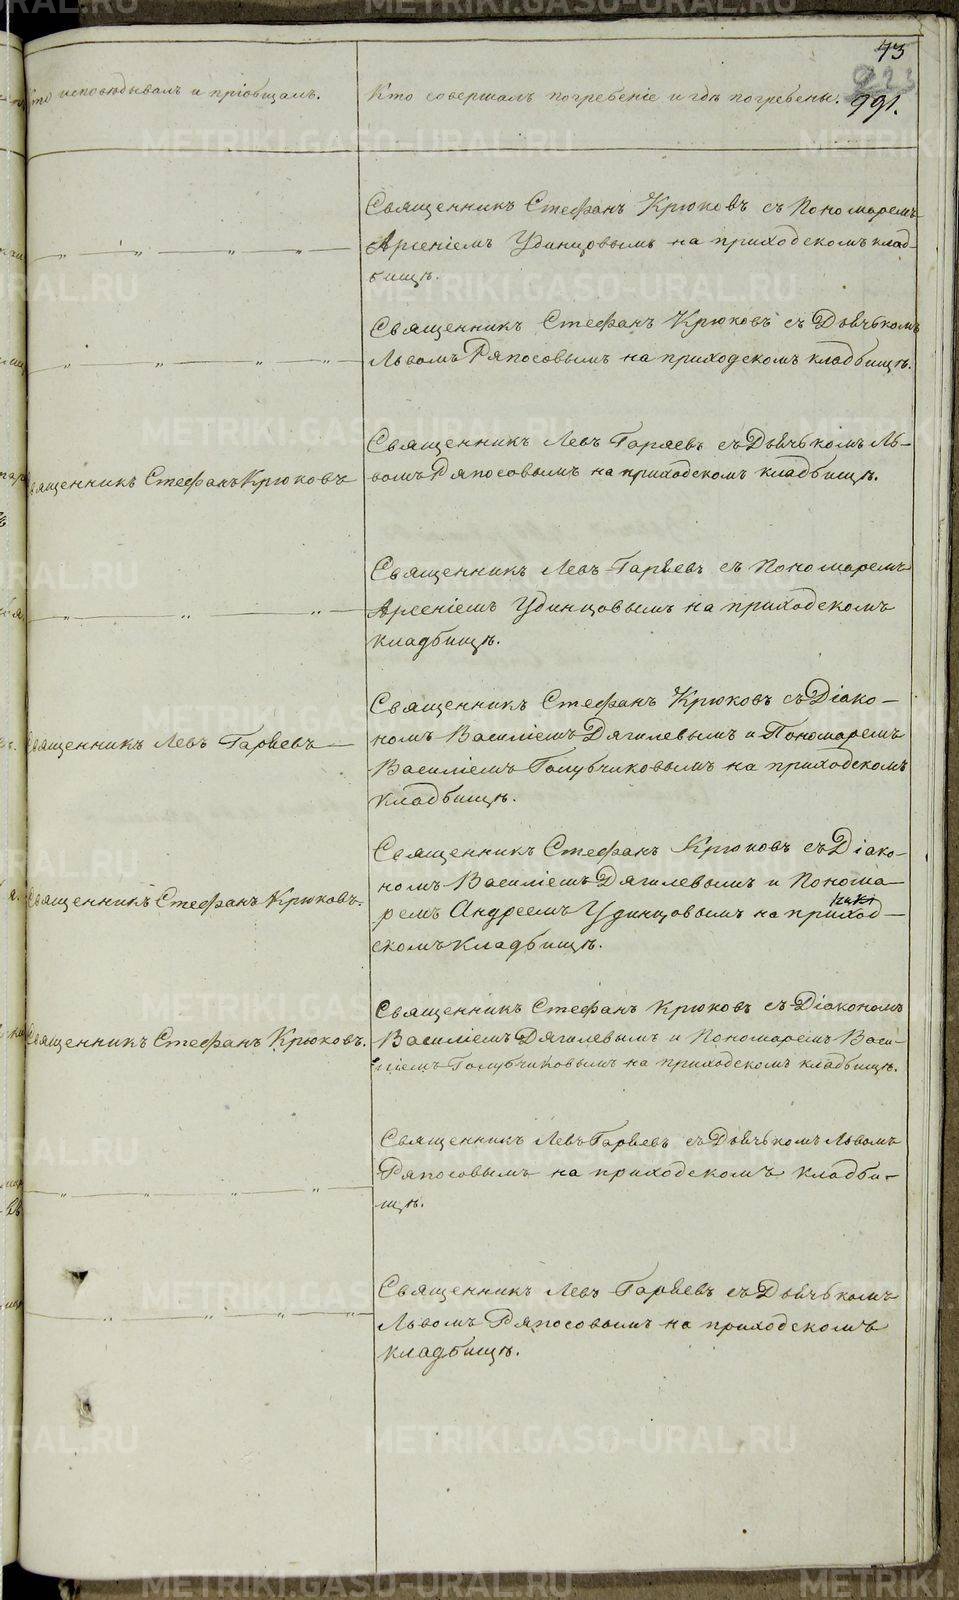 73
223
991.
Кто исповѣдывалъ и пріобщалъ.
Кто совершалъ погребеніе и гдѣ погребены.
Священникъ Стефанъ Крюковъ съ Пономаремъ
Арсеніемъ Удинцовымъ на приходскомъ клад-
бищѣ.
Священникъ Стефанъ Крюковъ съ Дьячькомъ
Львомъ Ряпосовымъ на приходскомъ кладбищѣ.
Священникъ Стефанъ Крюковъ
Священникъ Левъ Гаряевъ съ Дьячькомъ Ль-
вомъ Ряпосовымъ на приходскомъ кладбищѣ.
Священникъ Левъ Гаряевъ съ Пономаремъ
Арсеніемъ Удинцовымъ на приходскомъ
кладбищѣ.
Священникъ Левъ Гаряевъ
Священникъ Стефанъ Крюковъ съ Діако-
номъ Василіемъ Дягилевымъ и Пономаремъ
Василіемъ Голубчиковымъ на приходскомъ
кладбищѣ.
Священникъ Стефанъ Крюковъ.
Священникъ Стефанъ Крюковъ съ Діако-
номъ Василіемъ Дягилевымъ и Понома-
ремъ Андреемъ Удинцовымъ на приход-
скомъ кладбищѣ.
Священникъ Стефанъ Крюковъ.
Священникъ Стефанъ Крюковъ съ Діакономъ
Василіемъ Дягилевымъ и Пономаремъ Васи-
ліемъ Голубчиковымъ на приходскомъ кладбищѣ.
Священникъ Левъ Гаряевъ съ Дьячькомъ Львомъ
Ряпосовымъ на приходскомъ кладби-
щѣ.
Священникъ Левъ Гаряевъ съ Дьячькомъ
Львомъ Ряпосовымъ на приходскомъ
кладбищѣ.
METRIKI.GASO-URAL.RU